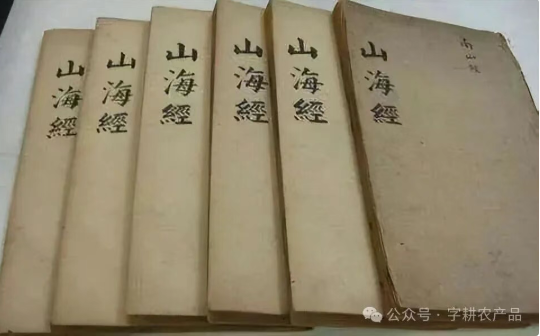 山海經
山海經
山海經
山海經
山海經
山海經
南山經
公众号·字耕农产品